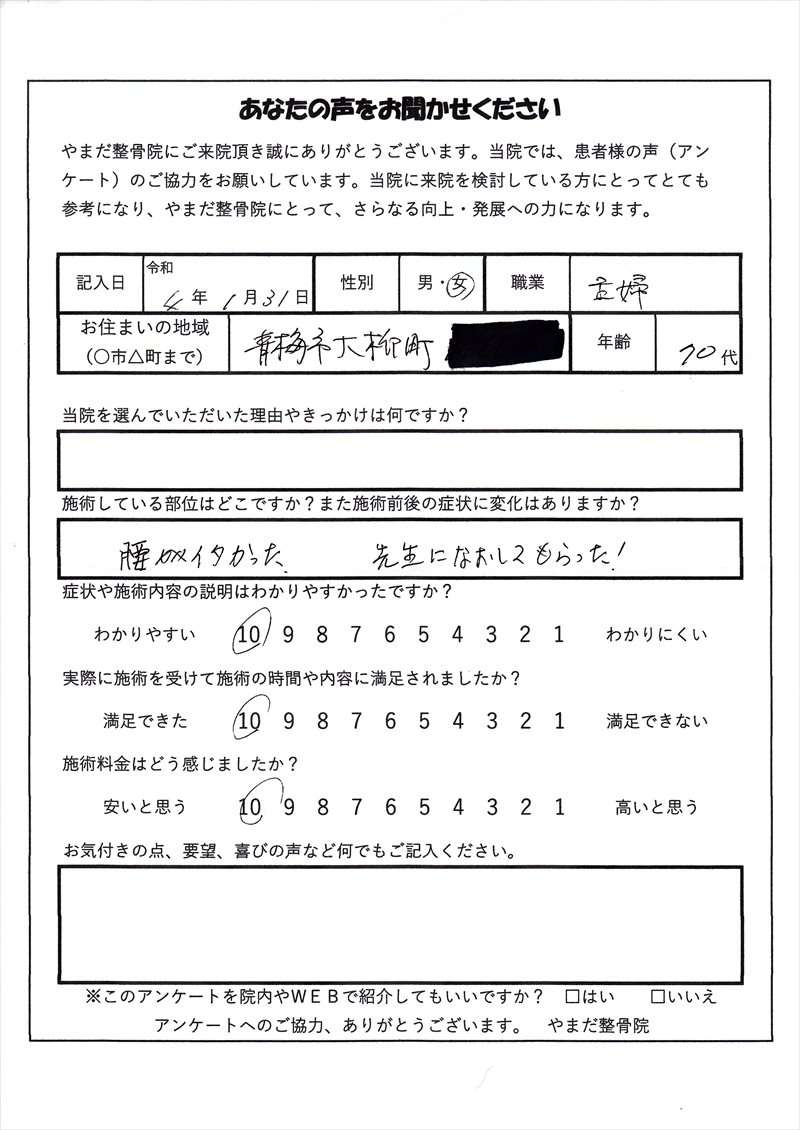 あなたの声をお聞かせください
やまだ整骨院にご来院頂き誠にありがとうございます。当院では、患者様の声（アン
ケート）のご協力をお願いしています。当院に来院を検討している方にとってとても
参考になり、やまだ整骨院にとって、さらなる向上・発展への力になります。
記入日 令和 4年 1月31日 性別 男・女 職業 主婦
お住まいの地域 青梅市大柳町 年齢 70代
（〇市△町まで）
当院を選んでいただいた理由やきっかけは何ですか？
施術している部位はどこですか？また施術前後の症状に変化はありますか？
腰がイタかった 先生になおしてもらった！
症状や施術内容の説明はわかりやすかったですか？
わかりやすい 10 9 8 7 6 5 4 3 2 1 わかりにくい
実際に施術を受けて施術の時間や内容に満足されましたか？
満足できた 10 9 8 7 6 5 4 3 2 1 満足できない
施術料金はどう感じましたか？
安いと思う 10 9 8 7 6 5 4 3 2 1 高いと思う
お気付きの点、要望、喜びの声など何でもご記入ください。
※このアンケートを院内やＷＥＢで紹介してもいいですか？ □はい □いいえ
アンケートへのご協力、ありがとうございます。 やまだ整骨院